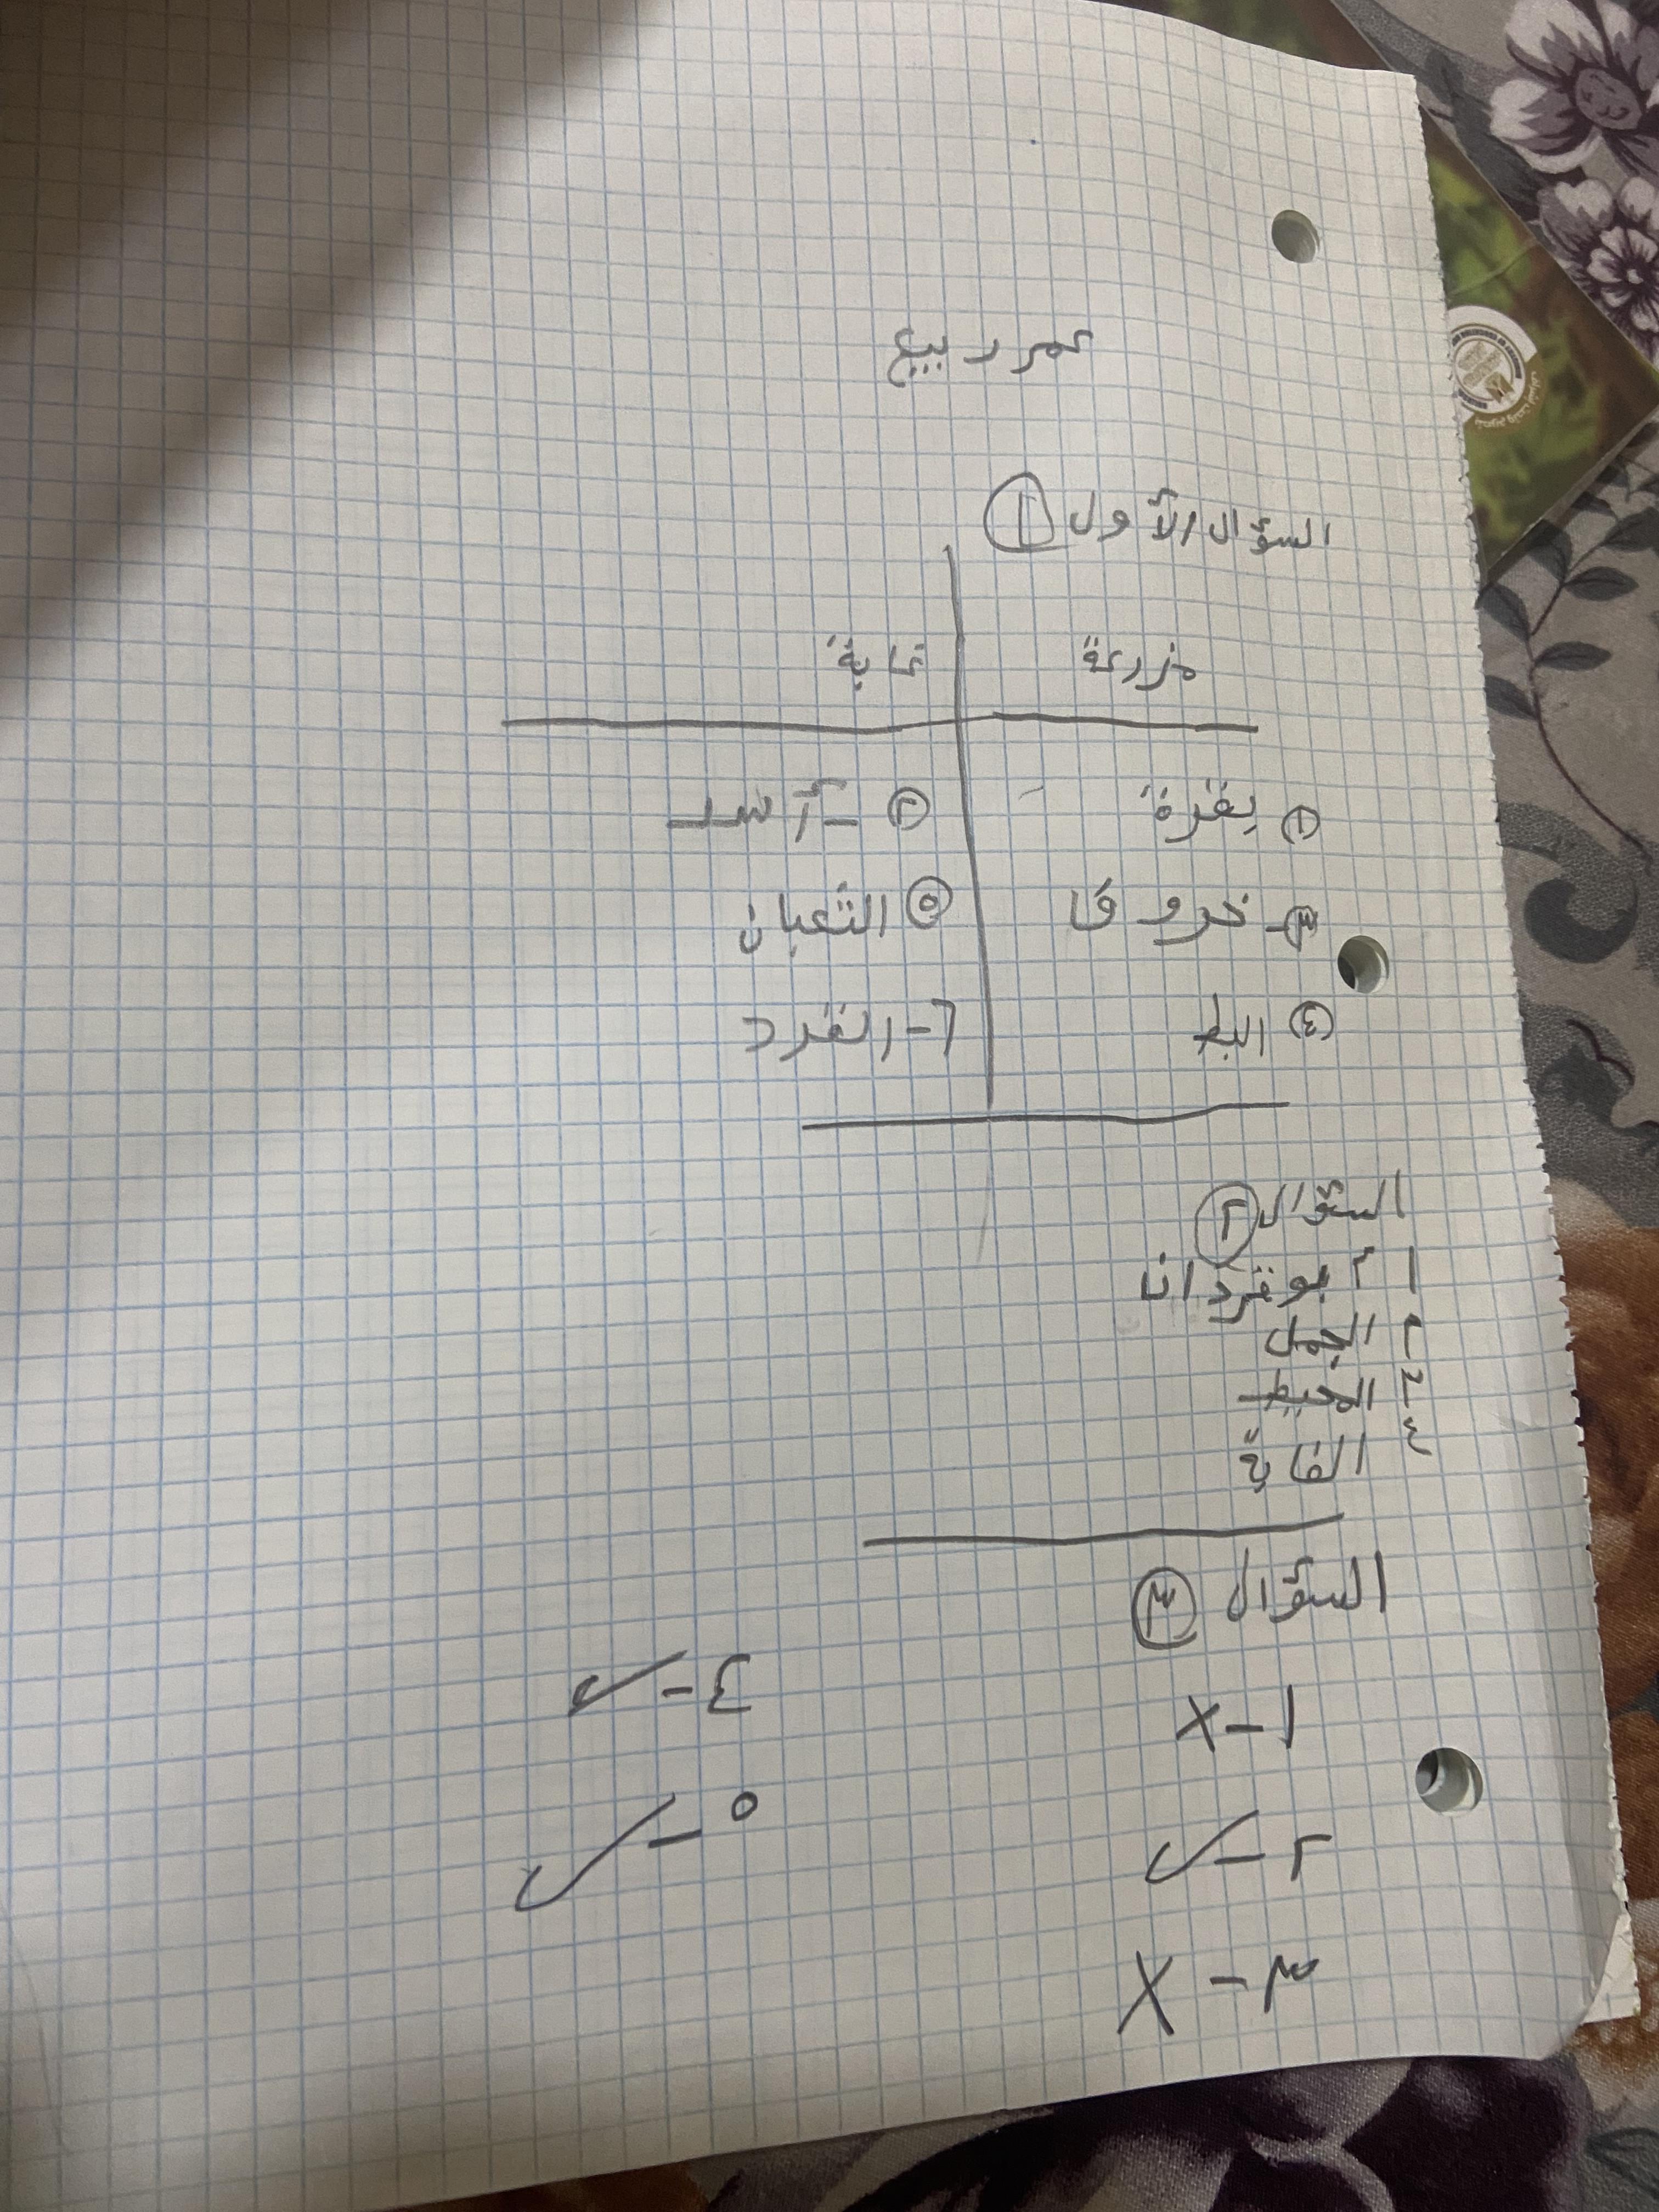 عمر ربيع
السؤال الأول ١
مزرعة غابة
١ بقرة ٢ - أسد
٣- خروف ٥ الثعبان
٤ البط ٦- القرد
السؤال ٢
١ أبو قردان
٢ الجمل
٣ المحيط
٤ الغابة
السؤال ٣
١- X ٤- ✓
٢- ✓ ٥- ✓
٣- X